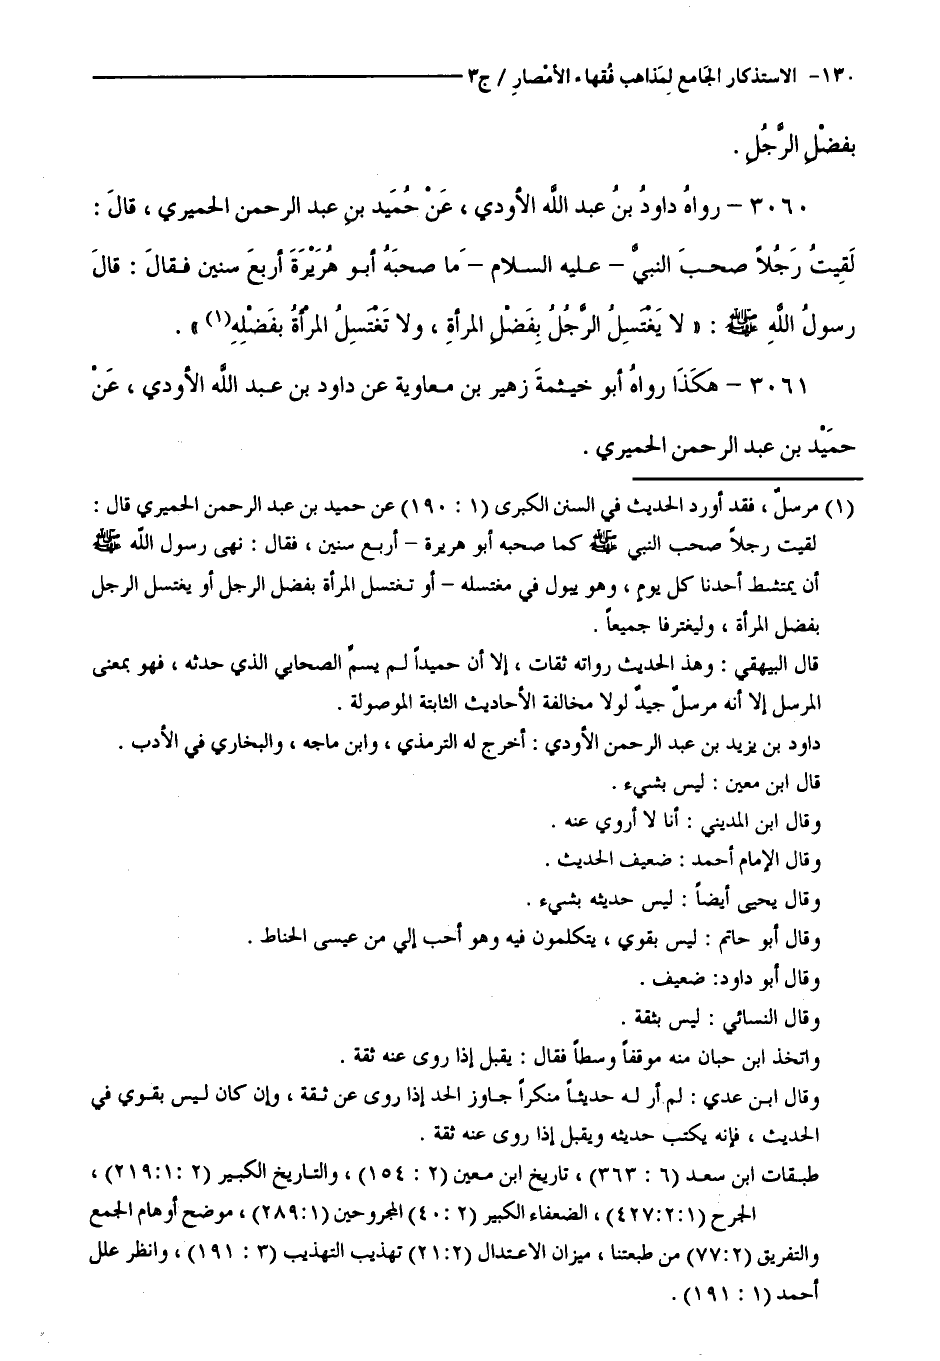 ١٣٠- الاستذكار الجَامع لِمَذاهب فُقهاء الأمْصارِ / ج٣
بفضْلِ الرَّجُلِ .
٣٠٦٠ – رواهُ داودُ بنُ عبد اللَّه الأودي ، عَنْ حُمَيَد بنِ عبد الرحمن الحميري ، قالَ :
لَقِيتُ رَجُلاً صحبَ النبيَّ – عليه السلام – مَا صحبَهُ أبو هُرَيْرَةَ أربعَ سنين فقالَ : قالَ
رسولُ اللَّهِ ﷺ : « لا يَغْتَسلُ الرَّجُلُ بِفَضْلِ المرأةِ ، ولا تَغْتَسِلُ المرأةُ بفَضْلِهِ(١) » .
٣٠٦١ – هَكَذَا رواهُ أبو خيثمةَ زهير بن معاوية عن داود بن عبد اللَّه الأودي ، عَنْ
حمَيْد بن عبد الرحمن الحميري .
(١) مرسلٌ ، فقد أورد الحديث في السنن الكبرى (١ : ١٩٠) عن حميد بن عبد الرحمن الحميري قال :
لقيت رجلاً صحب النبي ﷺ كما صحبه أبو هريرة – أربع سنين ، فقال : نهى رسول اللَّه ﷺ
أن يمتشط أحدنا كل يوم ، وهو يبول في مغتسله – أو تغتسل المرأة بفضل الرجل أو يغتسل الرجل
بفضل المرأة ، وليغترفا جميعاً .
قال البيهقي : وهذ الحديث رواته ثقات ، إلا أن حميداً لم يسمِّ الصحابي الذي حدثه ، فهو بمعنى
المرسل إلا أنه مرسلٌ جيدٌ لولا مخالفة الأحاديث الثابتة الموصولة .
داود بن يزيد بن عبد الرحمن الأودي : أخرج له الترمذي ، وابن ماجه ، والبخاري في الأدب .
قال ابن معين : ليس بشيء .
وقال ابن المديني : أنا لا أروي عنه .
وقال الإمام أحمد : ضعيف الحديث .
وقال يحيى أيضاً : ليس حديثه بشيء .
وقال أبو حاتم : ليس بقوي ، يتكلمون فيه وهو أحب إلي من عيسى الحناط .
وقال أبو داود: ضعيف .
وقال النسائي : ليس بثقة .
واتخذ ابن حبان منه موقفاً وسطاً فقال : يقبل إذا روى عنه ثقة .
وقال ابن عدي : لم أر له حديثاً منكراً جاوز الحد إذا روى عن ثقة ، وإن كان ليس بقوي في
الحديث ، فإنه يكتب حديثه ويقبل إذا روى عنه ثقة .
طبقات ابن سعد (٦ : ٣٦٣) ، تاريخ ابن معين (٢ : ١٥٤) ، والتاريخ الكبير (٢ :٢١٩:١) ،
الجرح (٤٢٧:٢:١) ، الضعفاء الكبير (٢ :٤٠) المجروحين (٢٨٩:١) ، موضح أوهام الجمع
والتفريق (٧٧:٢) من طبعتنا ، ميزان الاعتدال (٢١:٢) تهذيب التهذيب (٣ : ١٩١) ، وانظر علل
أحمد (١ : ١٩١) .